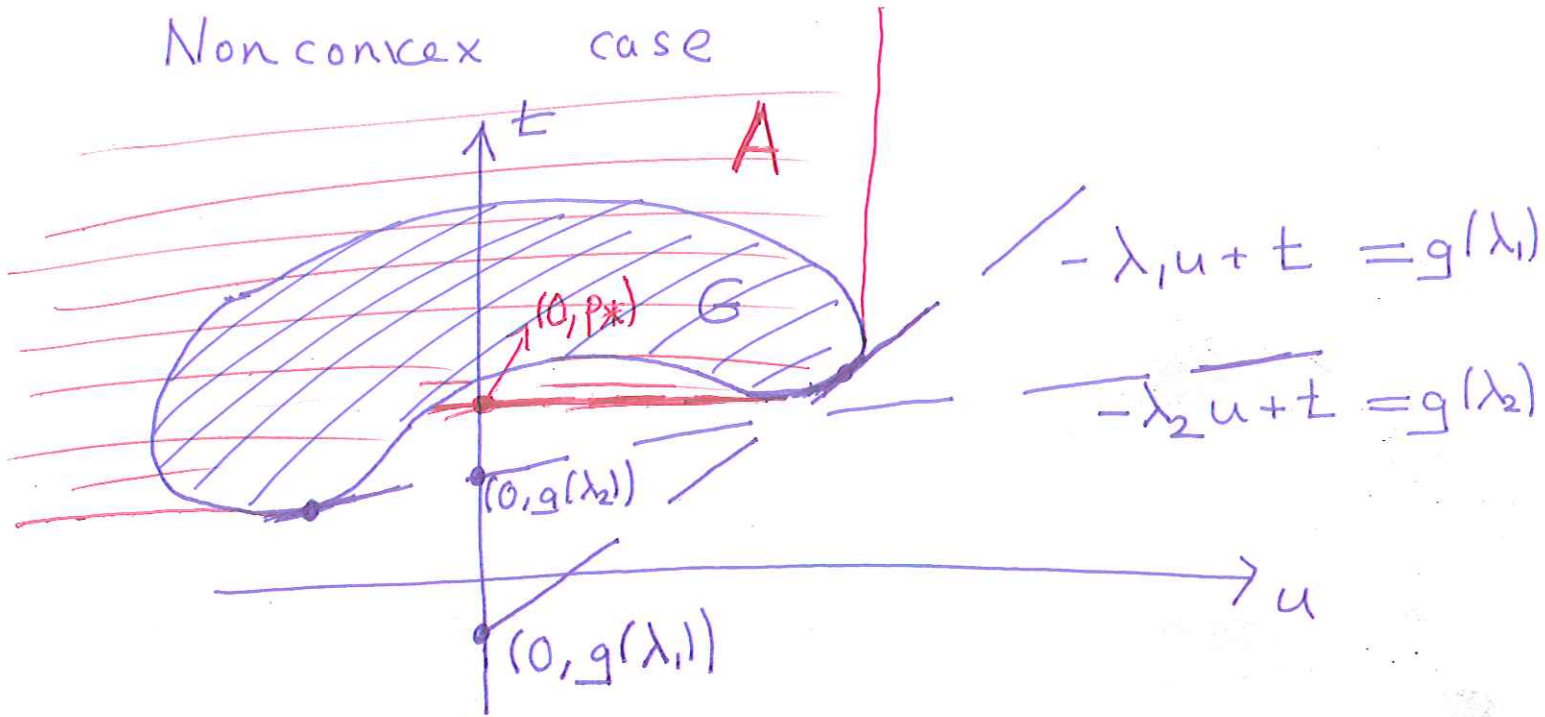 Nonconvex case
t
A
-λ₁u + t = g(λ₁)
(0, p*)
G
-λ₂u + t = g(λ₂)
(0, g(λ₂))
u
(0, g(λ₁))